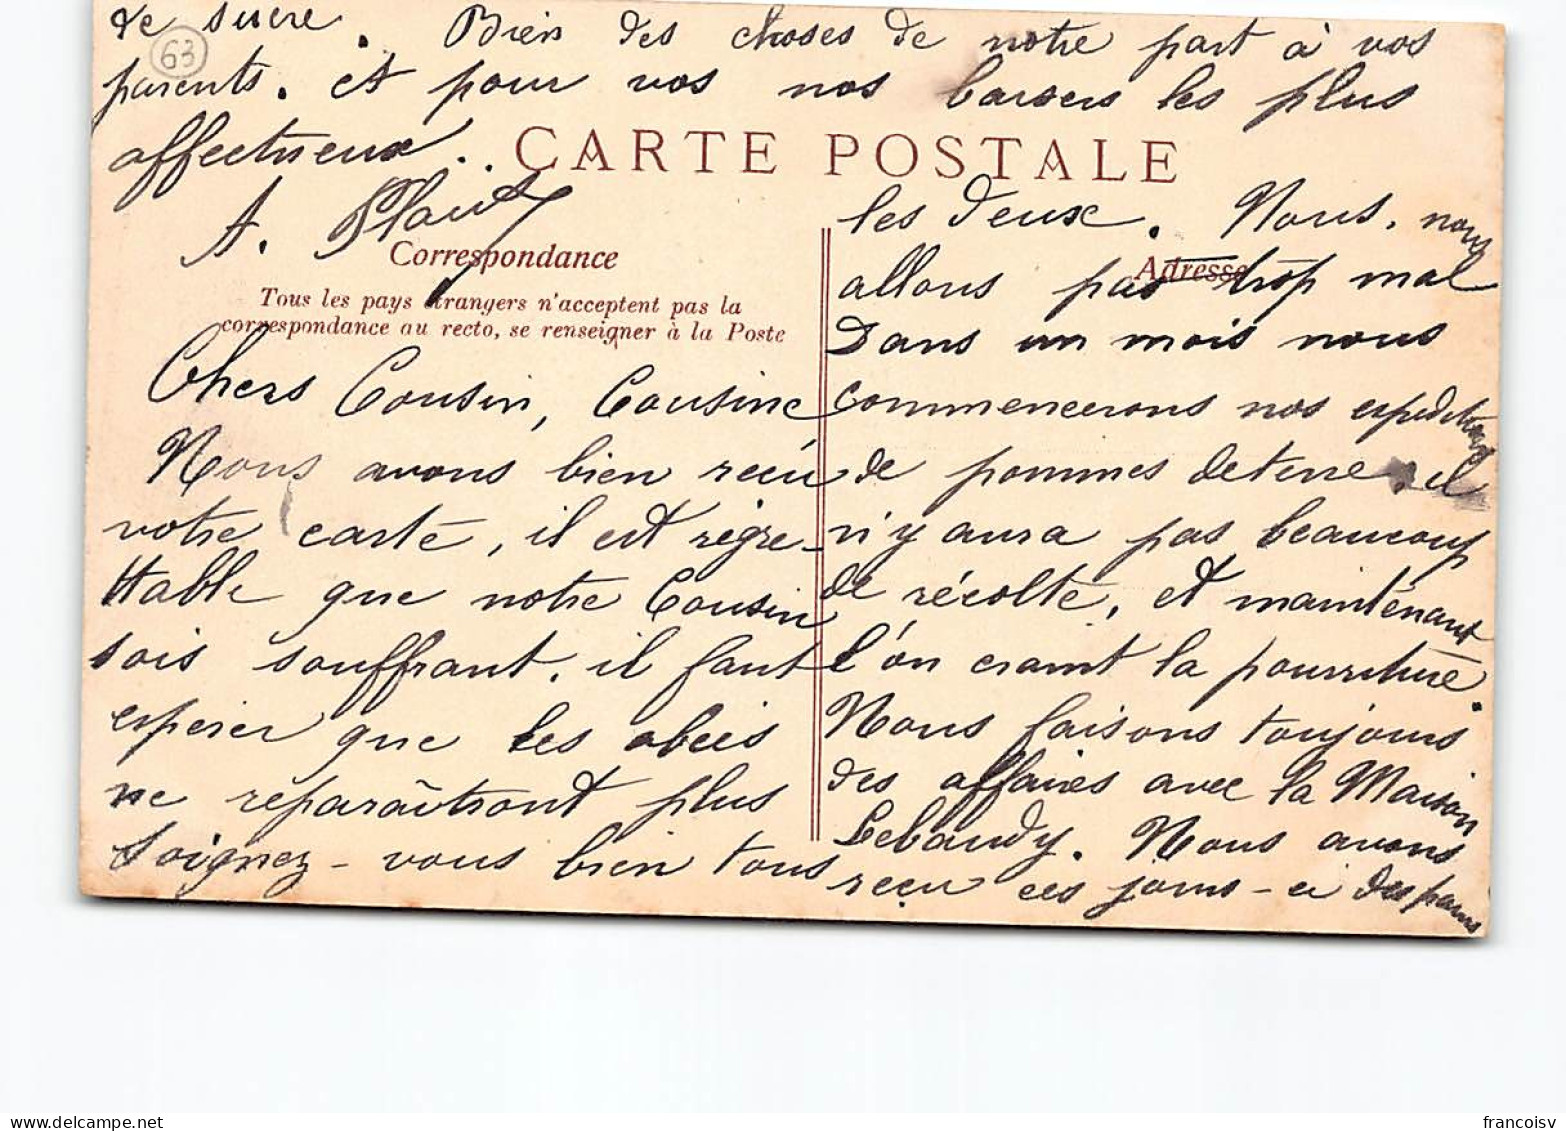 de sucre. Bien des choses de notre part à vos
63
parents. et pour vos nos baisers les plus
affectueux..
CARTE POSTALE
A.
Correspondance
Tous les pays étrangers n'acceptent pas la
correspondance au recto, se renseigner à la Poste
Chers Cousin, Cousine
Nous avons bien recu
votre carte, il est regre-
ttable que notre Cousin
sois souffrant. il faut
esperer que les abcés
ne reparaîtront plus
Soignez-vous bien tous
Adresse
les deux. Nous, nous
allons pas trop mal
Dans un mois nous
commencerons nos expeditions
de pommes de terre. il
n'y aura pas beaucoup
de récolte, et maintenant
l'on craint la pourriture.
Nous faisons toujours
des affaires avec la Maison
Lebaudy. Nous avons
reçu ces jours-ci des pains
francoisv
delcampe.net